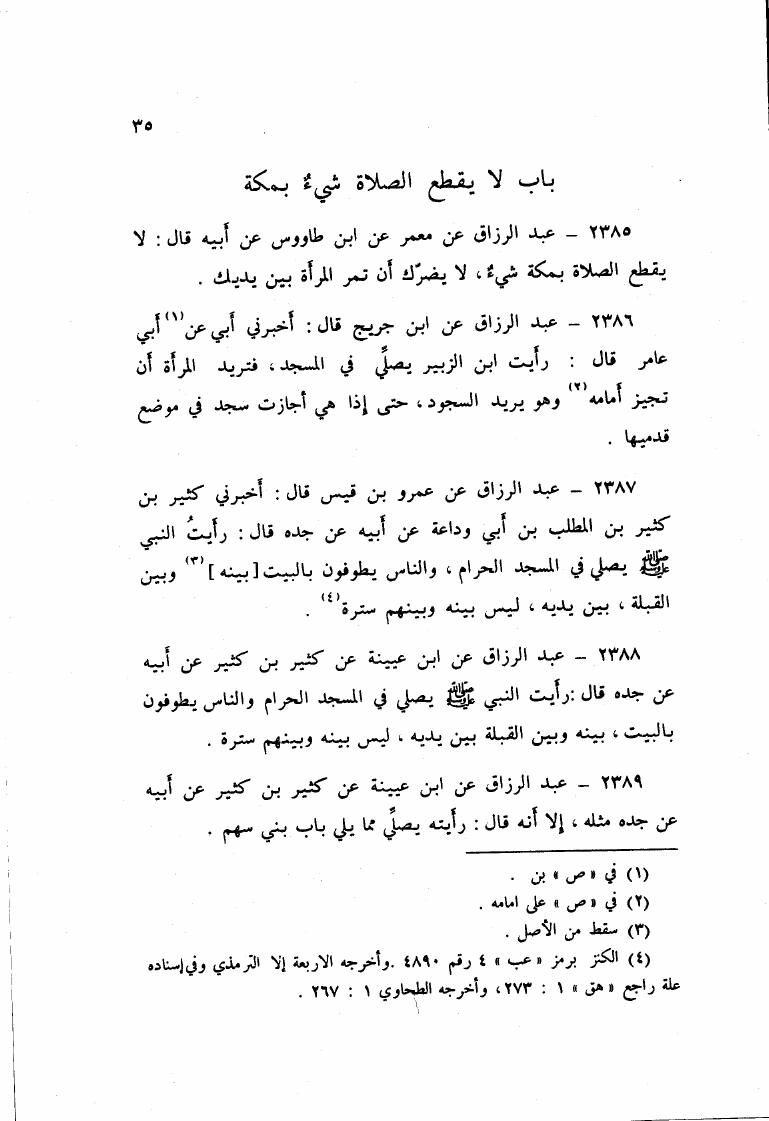 ٣٥
باب لا يقطع الصلاة شيءٌ بمكة
٢٣٨٥ – عبد الرزاق عن معمر عن ابن طاووس عن أبيه قال : لا
يقطع الصلاة بمكة شيءٌ ، لا يضرّك أن تمر المرأة بين يديك .
٢٣٨٦ – عبد الرزاق عن ابن جريج قال : أخبرني أبي عن(١) أبي
عامر قال : رأيت ابن الزبير يصلِّي في المسجد ، فتريد المرأة أن
تجيز أمامه(٢) وهو يريد السجود ، حتى إذا هي أجازت سجد في موضع
قدميها .
٢٣٨٧ – عبد الرزاق عن عمرو بن قيس قال : أخبرني كثير بن
كثير بن المطلب بن أبي وداعة عن أبيه عن جده قال : رأيتُ النبي
ﷺ يصلي في المسجد الحرام ، والناس يطوفون بالبيت [ بينه ](٣) وبين
القبلة ، بين يديه ، ليس بينه وبينهم سترة(٤) .
٢٣٨٨ – عبد الرزاق عن ابن عيينة عن كثير بن كثير عن أبيه
عن جده قال : رأيت النبي ﷺ يصلي في المسجد الحرام والناس يطوفون
بالبيت ، بينه وبين القبلة بين يديه ، ليس بينه وبينهم سترة .
٢٣٨٩ – عبد الرزاق عن ابن عيينة عن كثير بن كثير عن أبيه
عن جده مثله ، إلا أنه قال : رأيته يصلِّي مما يلي باب بني سهم .
(١) في « ص » بن .
(٢) في « ص » على امامه .
(٣) سقط من الأصل .
(٤) الكنز برمز « عب » ٤ رقم ٤٨٩٠ . وأخرجه الاربعة إلا الترمذي وفي إسناده
علة راجع « هق » ١ : ٢٧٣ ، وأخرجه الطحاوي ١ : ٢٦٧ .